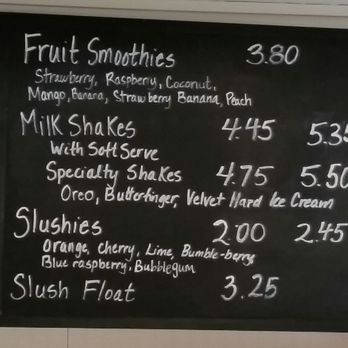 Fruit Smoothies 3.80
Strawberry, Raspberry, Coconut,
Mango, Banana, Strawberry Banana, Peach
Milk Shakes 4.45 5.35
With Soft Serve
Specialty Shakes 4.75 5.50
Oreo, Butterfinger, Velvet Hard Ice Cream
Slushies 2.00 2.45
Orange, Cherry, Lime, Bumble-berry
Blue raspberry, Bubblegum
Slush Float 3.25